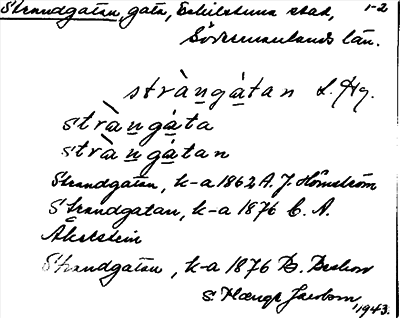 Strandgatan, gata, Eskilstuna stad, 1-2
Södermanlands län.
stràngátan L. Hg.
stràngáta
stràngátan
Strandgatan, k-a 1862 A. J. Hörnström
Strandgatan, k-a 1876 C. A.
Åkerstein
Strandgatan, k-a 1876 D.
S. Jacobson, 1943.